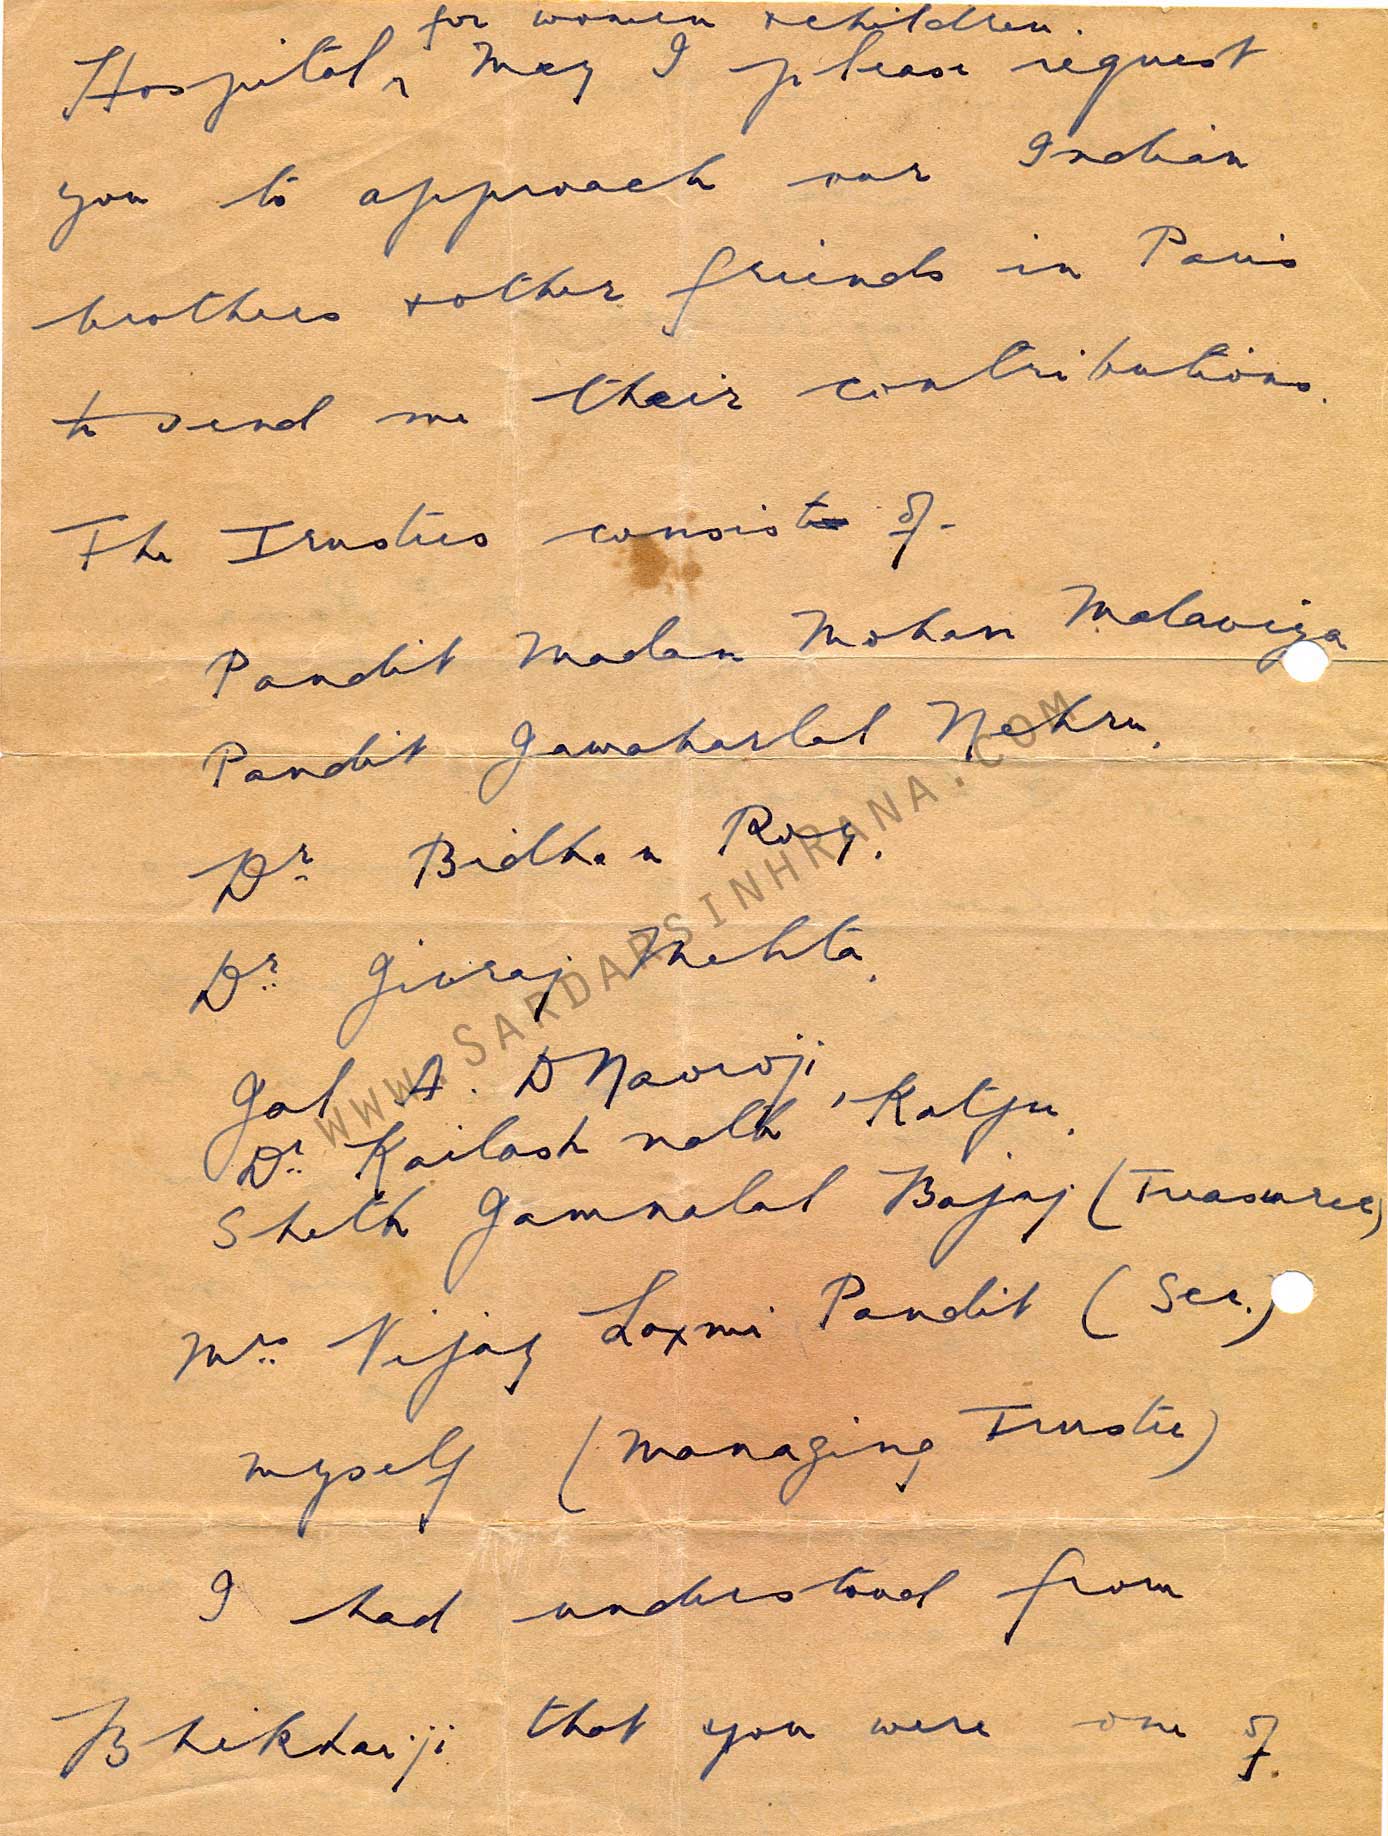 for women & children.
Hospital, May I please request
you to approach our Indian
brothers & other friends in Paris
to send me their contributions.
The Trustees consist of -
Pandit Madan Mohan Malaviya
Pandit Jawaharlal Nehru.
Dr Bidhan Roy.
Dr. Jivraj Mehta.
Jal A. D Naoroji,
Dr. Kailash nath Katju.
Sheth Jamnalal Bajaj (Treasurer)
Mrs. Vijay Laxmi Pandit (Sec.)
myself (Managing Trustee)
I had understood from
Bhikhaiji that you were one of.
WWW.SARDARSINHRANA.COM